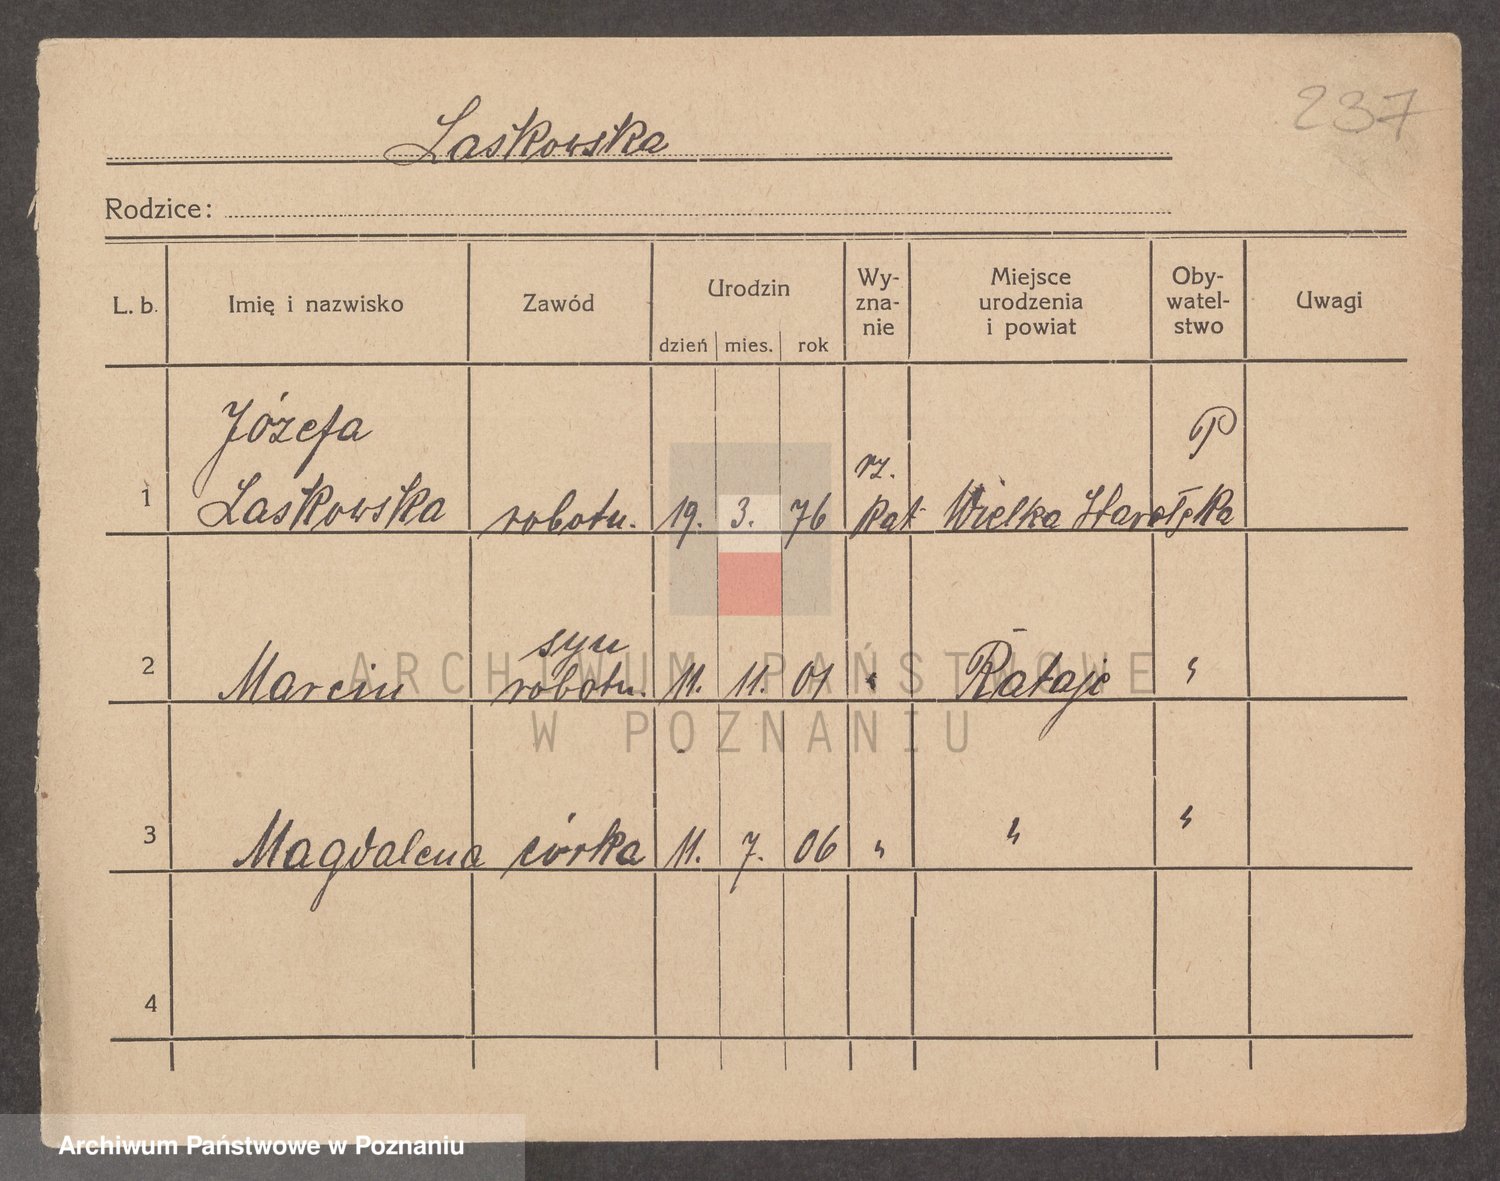 237
Laskowska
Rodzice:
L. b.
Imię i nazwisko
Zawód
Urodzin
dzień
mies.
rok
Wy-
zna-
nie
Miejsce
urodzenia
i powiat
Oby-
watel-
stwo
Uwagi
Józefa
P
rz.
1 Laskowska robotn. 19. 3. 76 kat Wielka Starołęka
syn
2 Marcin robotn. 11. 11. 01 " Rataje "
3 Magdalena córka 11. 7. 06 " " "
4
ARCHIWUM PAŃSTWOWE
W POZNANIU
Archiwum Państwowe w Poznaniu